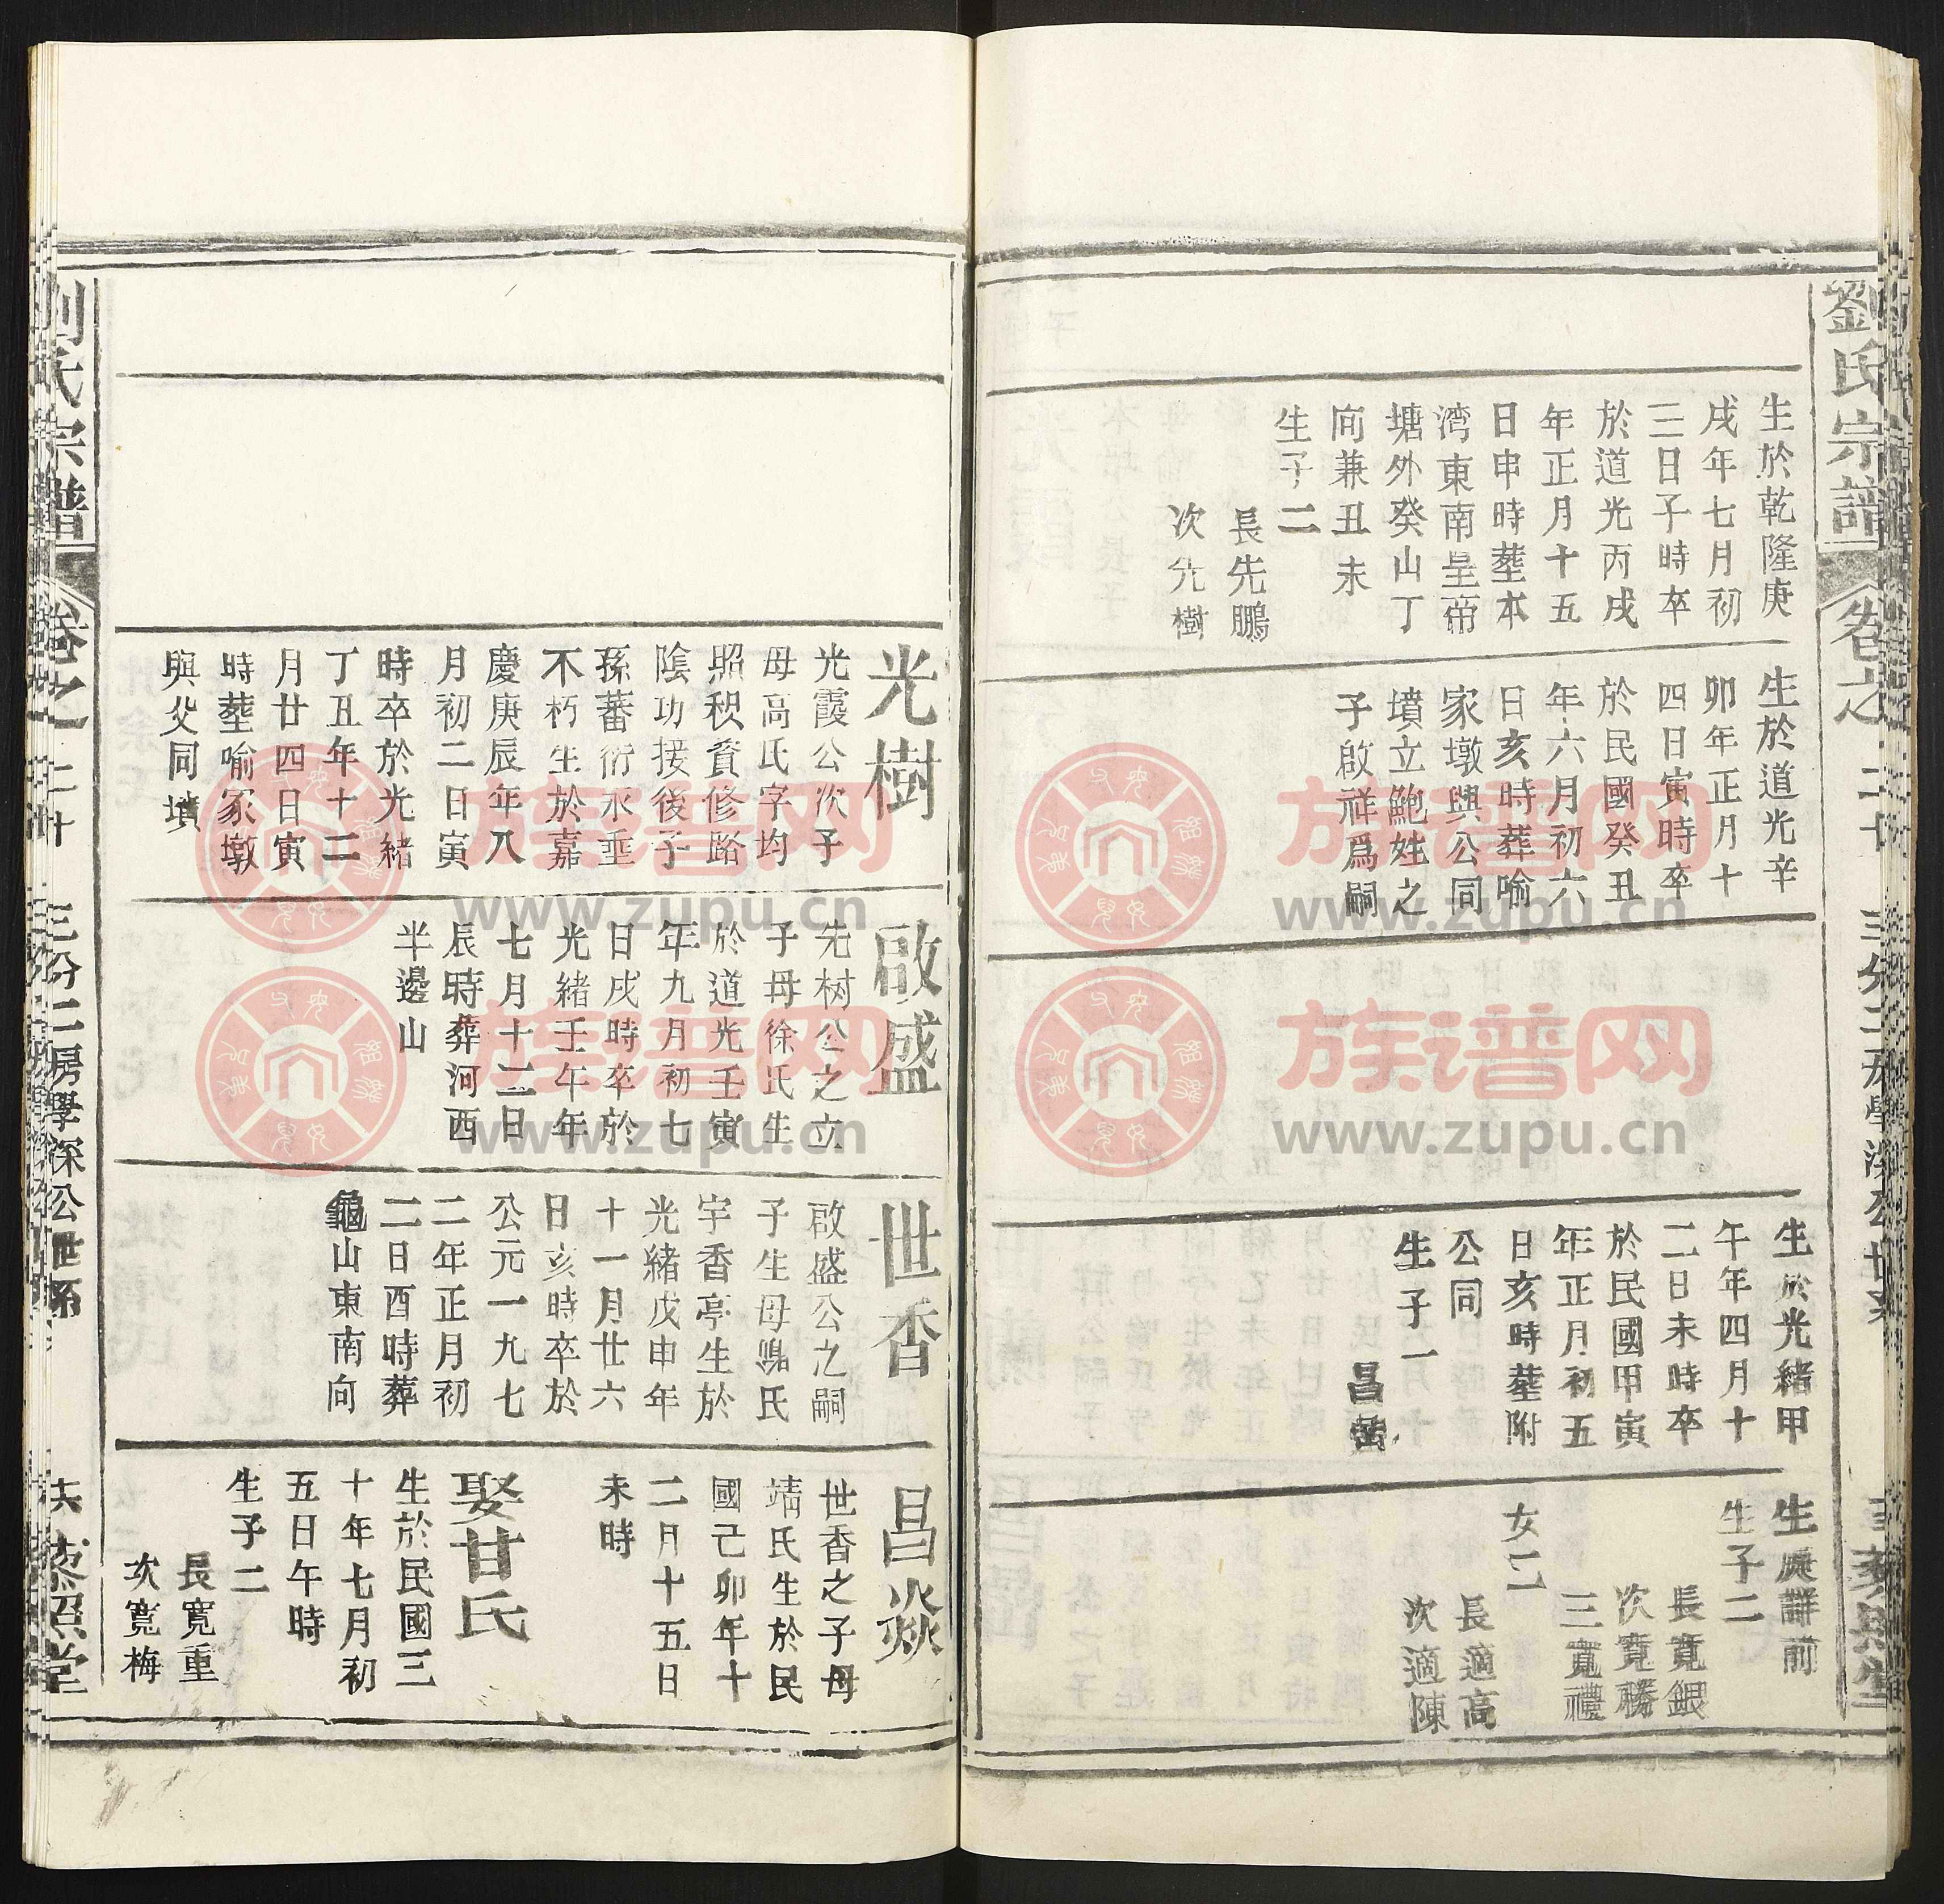 劉氏宗譜
卷之二十
三分二房學深公世系
生於乾隆庚
戌年七月初
三日子時卒
於道光丙戌
年正月十五
日申時塟本
湾東南畢
塘外癸山丁
向兼丑未
生子二
長先鵬
次先樹
生於道光辛
卯年正月十
四日寅時卒
於民國癸丑
年六月初六
日亥時葬喻
家墩與公同
墳立鮑姓之
子啟祥爲嗣
生於光緒甲
午年四月十
二日未時卒
於民國甲寅
年正月初五
日亥時塟附
公同
生子一
昌
生處詳前
生子二
長寬銀
次寬勝
三寬禮
女二
長適高
次適陳
光樹
光霞公次子
母高氏字均
照积資修路
陰功接後子
孫蕃衍永垂
不朽生於嘉
慶庚辰年八
月初二日寅
時卒於光緒
丁丑年十二
月廿四日寅
時塟喻冢墩
與父同墳
啟盛
先树公之立
子母徐氏生
於道光壬寅
年九月初七
日戌時卒於
光緒壬午年
七月十二日
辰時葬河西
半邊山
世香
啟盛公之嗣
子生母氏
字香亭生於
光緒戊申年
十一月廿六
日亥時卒於
公元一九七
二年正月初
二日酉時葬
龜山東南向
昌焱
世香之子母
靖氏生於民
國己卯年十
二月十五日
未時
娶甘氏
生於民國三
十年七月初
五日午時
生子二
長寬重
次寬梅
劉氏宗譜
卷之二十
三份二房學深公世系
共
藜照堂
族谱网
www.zupu.cn
族谱网
www.zupu.cn
族谱网
www.zupu.cn
族谱网
www.zupu.cn